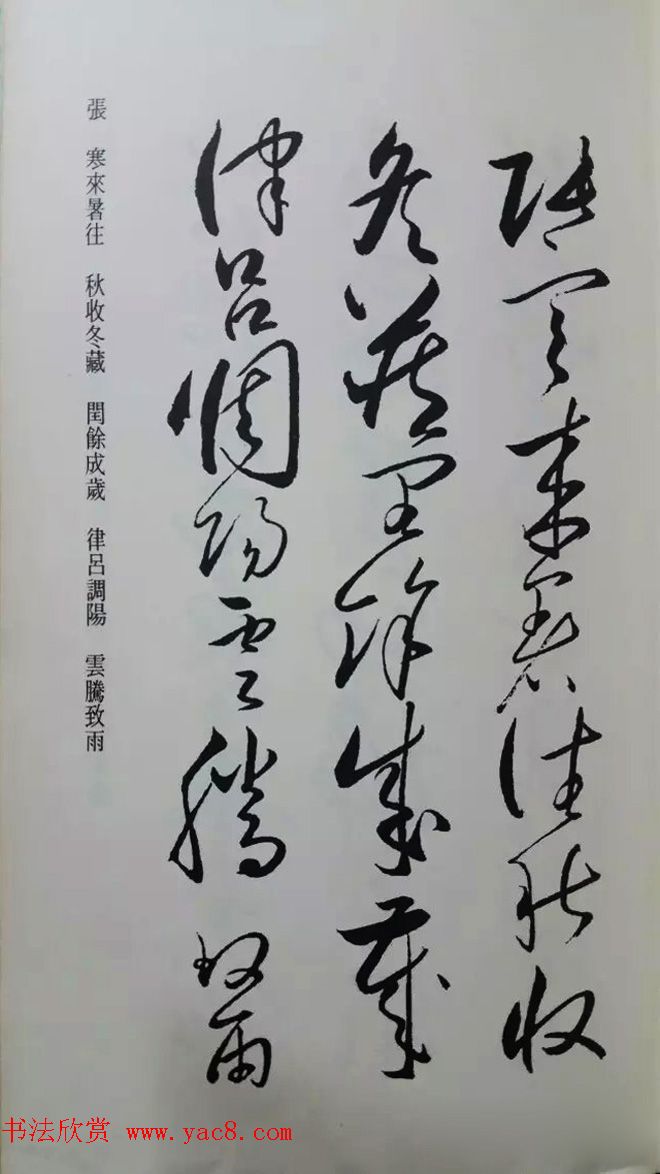 張寒來暑往秋收
冬藏閏餘成歲
律呂調陽雲騰致雨
張 寒來暑往 秋收冬藏 閏餘成歲 律呂調陽 雲騰致雨
书法欣赏 www.yac8.com